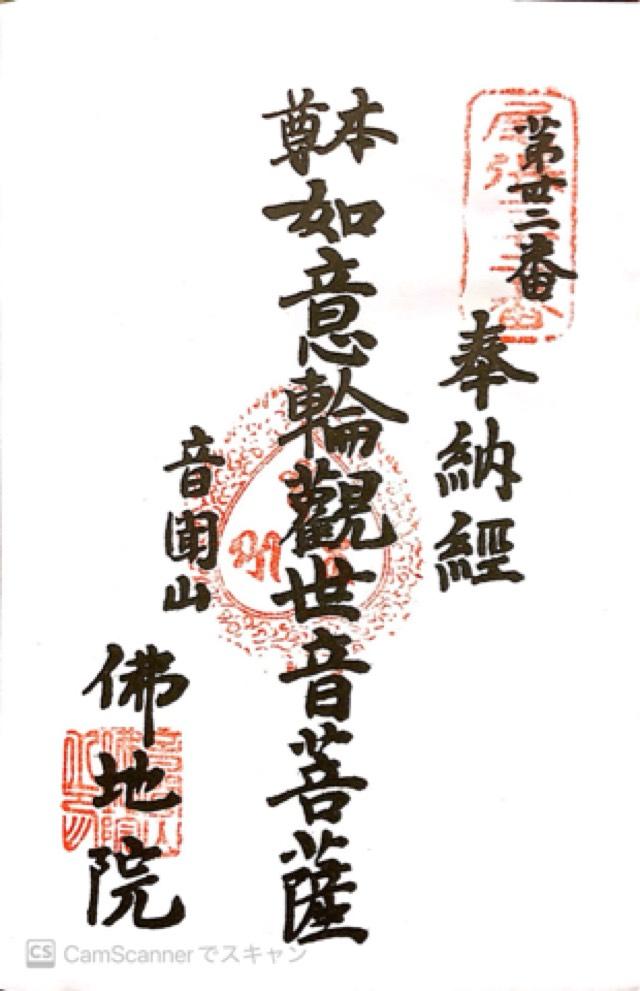 第廿二番
奉納經
本尊
如意輪觀世音菩薩
音聞山
佛地院
CS CamScannerでスキャン